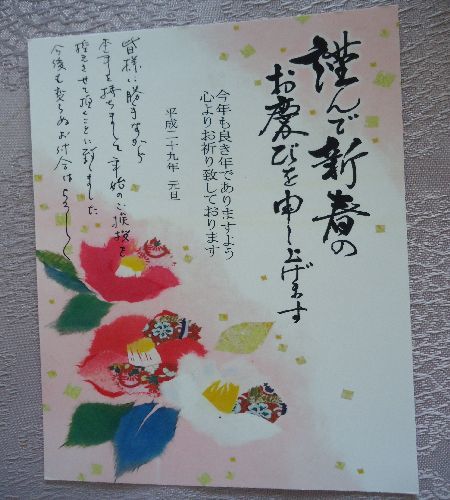 謹んで新春の
お慶びを申し上げます
今年も良き年でありますよう
心よりお祈り致しております
平成二十九年 元旦
皆様に勝手ながら
本年を持ちまして年始のご挨拶を
控えさせて頂くことに致しました
今後も変らぬお付合はよろしく